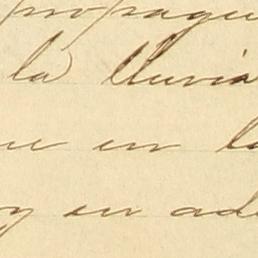 propague
la lluvia
ue en la
y en ade